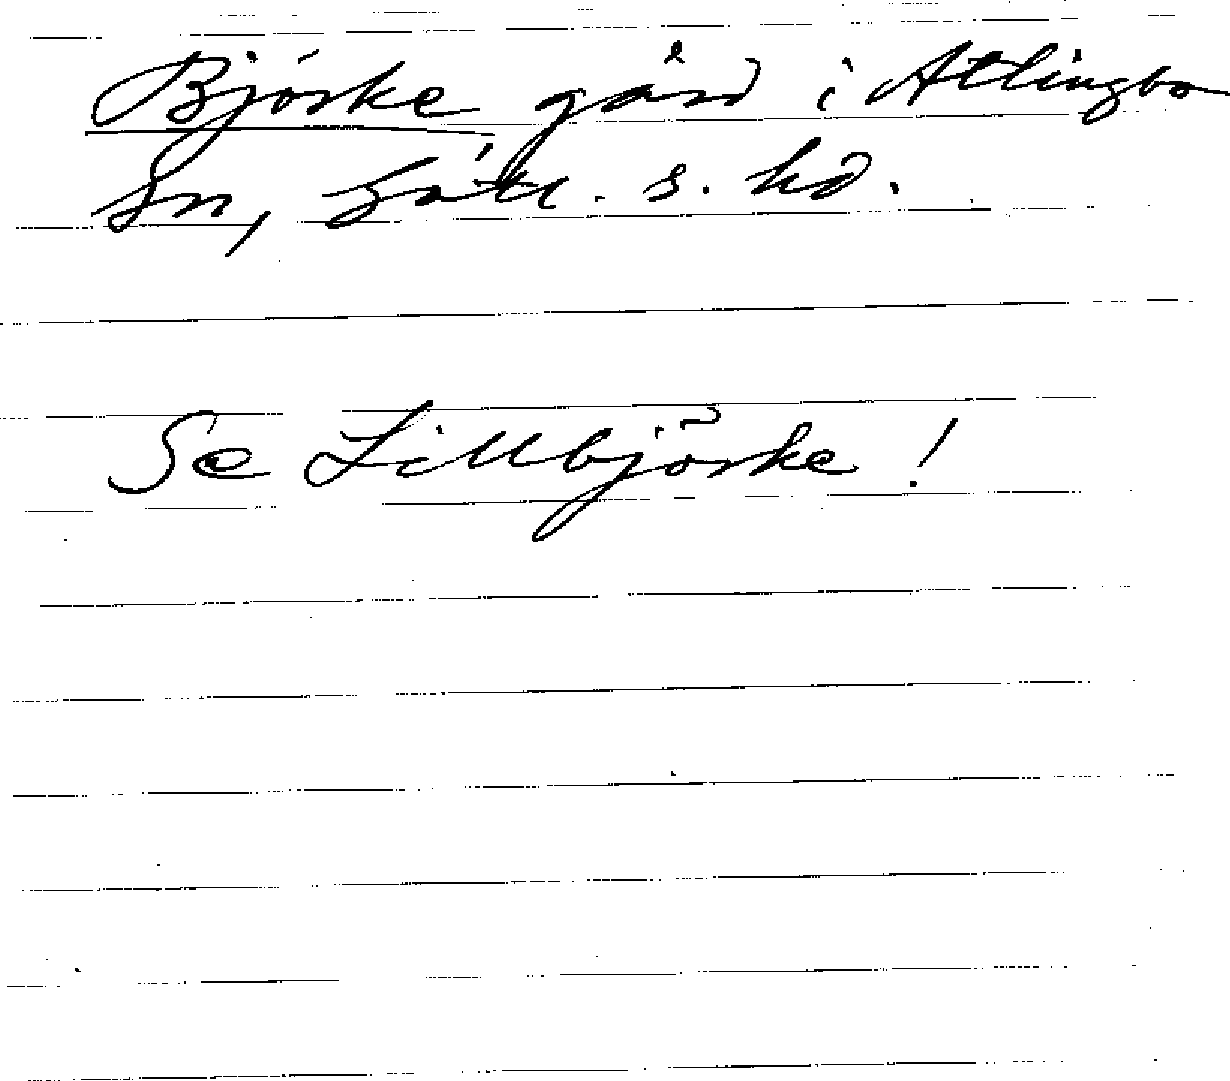 Björke gård i Atlingbo
sn, Gotl. s. hd.
Se Lillbjörke!